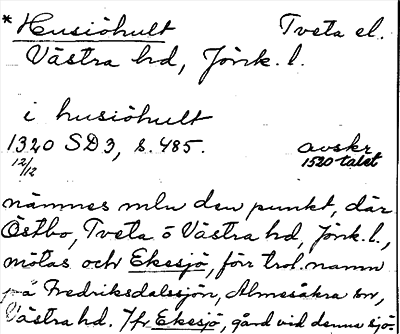 * Husiöhult Tveta el.
Västra hd, Jönk. l.
i husiöhult
1320 SD3, s. 485. avskr
12/12 1520 talet
nämnes mln den punkt, där
Östbo, Tveta o Västra hd, Jönk. l.,
mötas och Ekesjö, förr trol. namn
på Fredriksdalssjön, Almesåkra sn,
Västra hd. Jfr Ekesjö, gård vid denna sjö.